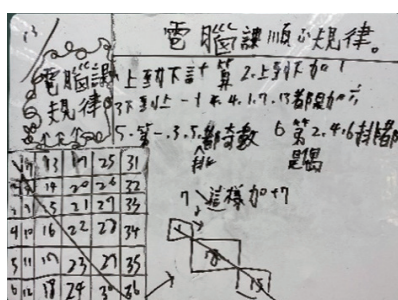 電腦課順心規律。
電腦課 上到下計算 2.上到下加1
規律 3下到上-1 4.1.7.13都是加六
5.第一.3.5都奇數 6第2.4.6排都是偶
排
7 這樣加+7
13 19 25 31
14 20 26 32
21 27 33
4 10 16 22 28 34
5 11 17 23 29 35
6 12 18 24 30 36
1
8
15